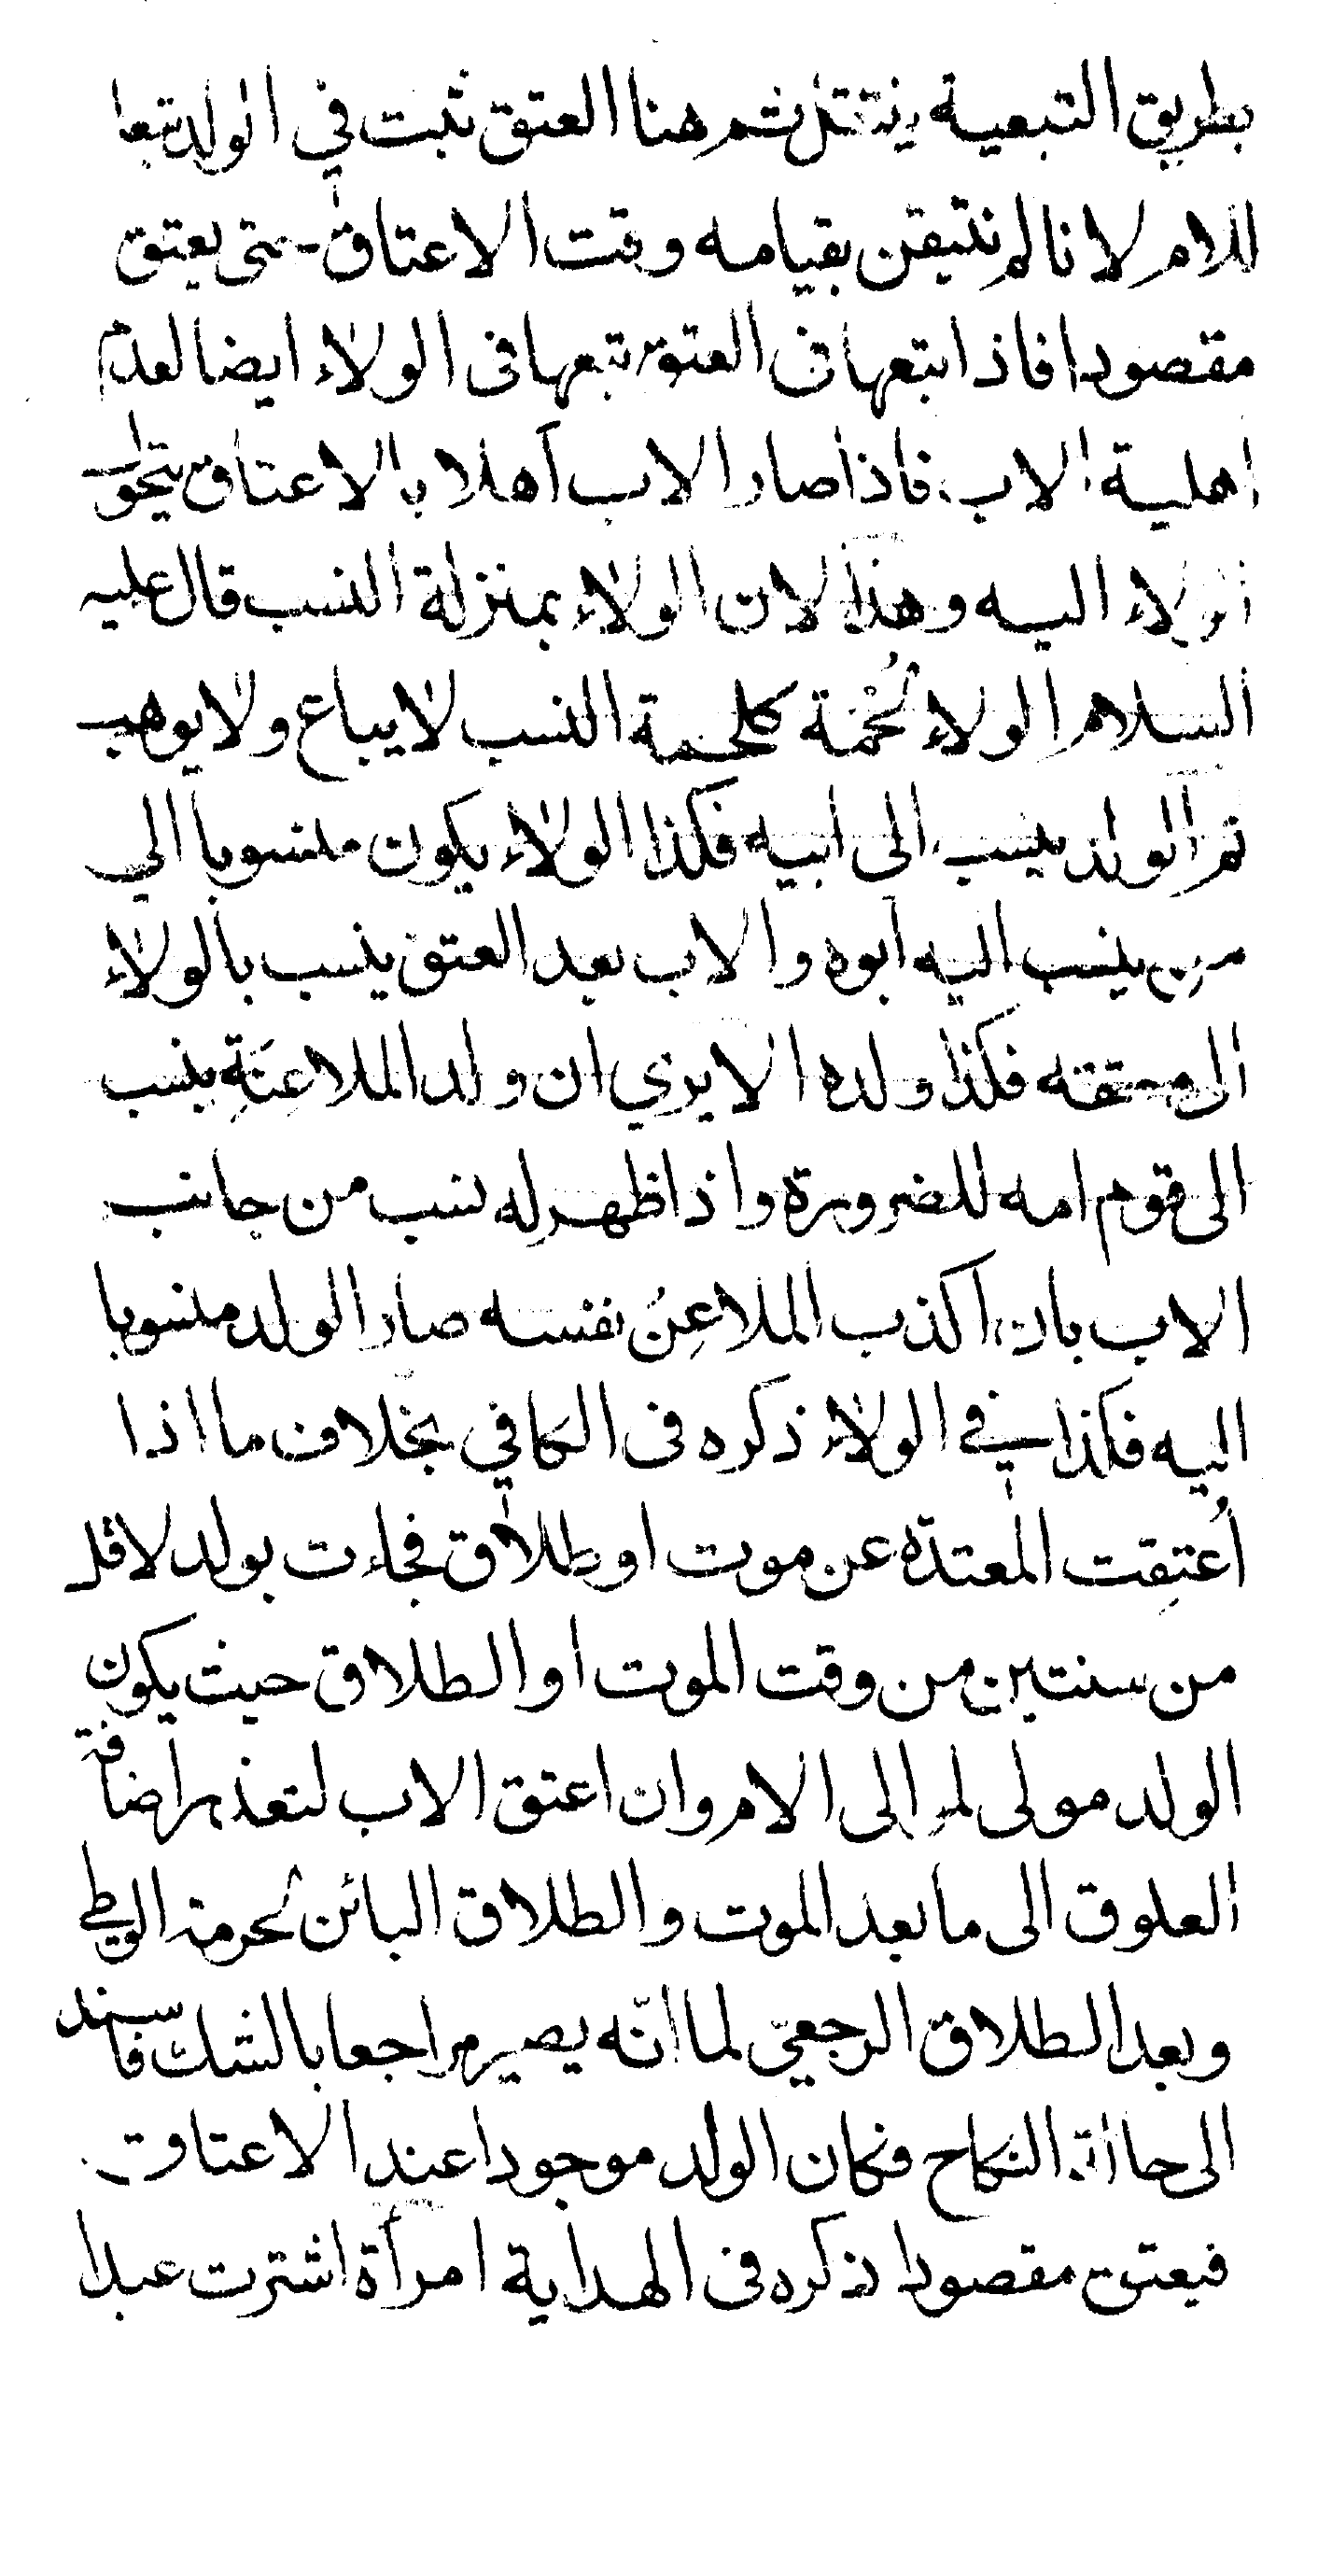 بطريق التبعية ينتقل ثم هنا العتق ثبت في الولد تبعا
للام لانا لم نتيقن بقيامه وقت الاعتاق حتى يعتق
مقصودا فاذا تبعها فى العتق تبعها فى الولاء ايضا لعدم
اهلية الاب فاذا صار الاب اهلا بالاعتاق يتحول
الولاء اليه وهذا لان الولاء بمنزلة النسب قال عليه
السلام الولاء لُحْمَة كلحمة النسب لا يباع ولا يوهب
ثم الولد ينسب الى ابيه فكذا الولاء يكون منسوبا الي
من ينسب اليه ابوه والاب بعد العتق ينسب بالولاء
الى معتقه فكذا ولده الا يري ان ولد الملاعِنَةِ ينسب
الى قوم امه للضرورة واذا ظهر له نسب من جانب
الاب بان اكذب الملاعِنُ نفسه صار الولد منسوبا
اليه فكذا في الولاء ذكره فى الكافي بخلاف ما اذا
اُعتِقت المعتدّة عن موت او طلاق فجاءت بولد لاقل
من سنتين من وقت الموت او الطلاق حيث يكون
الولد مولى لموالى الام وان اعتق الاب لتعذر اضافة
العلوق الى ما بعد الموت والطلاق البائن لحرمة الوطئ
وبعد الطلاق الرجعيّ لما انّه يصير مراجعا بالشك فاسند
الى حالة النكاح فكان الولد موجودا عند الاعتاق
فيعتق مقصودا ذكره فى الهداية امرأة اشترت عبدا